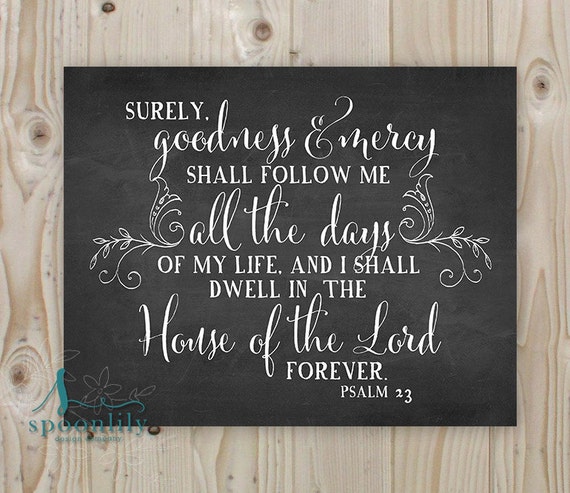 SURELY,
goodness & mercy
SHALL FOLLOW ME
all the days
OF MY LIFE, AND I SHALL
DWELL IN THE
House of the Lord
FOREVER.
PSALM 23
spoonlily
design company